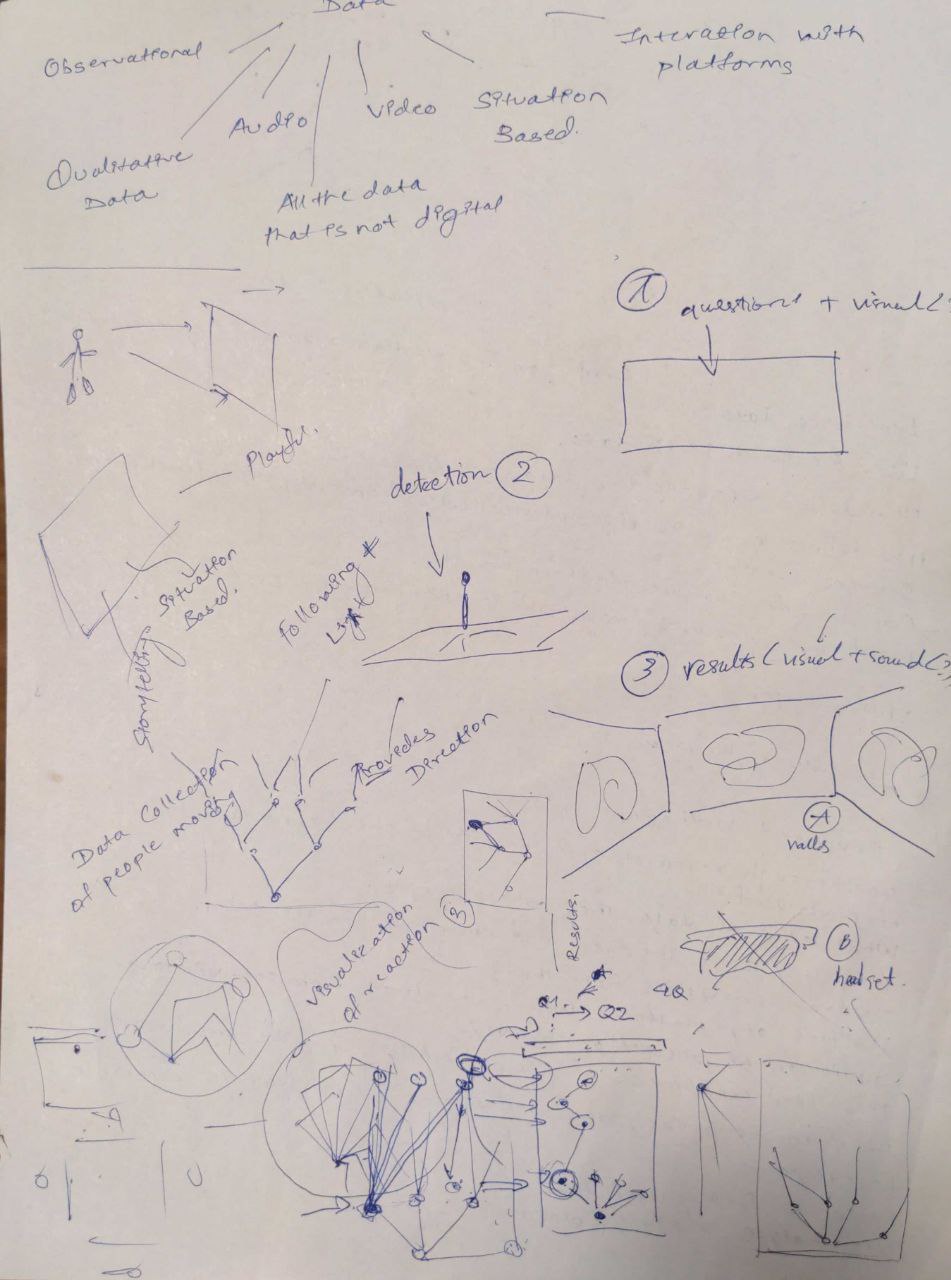 Data
Observational
Interation with
platforms
Audio
Video
Situation
Based.
Qualitative
Data
All the data
that is not digital
1
questions + visual (
Playful.
detection 2
Situation
Based.
Storytelling
Following
Light
3 results (visual + sound (?)
Provides
Direction
Data Collection
of people moving
A
walls
Visualization
of reaction 3
Results.
B
headset.
Q1 → Q2
4Q